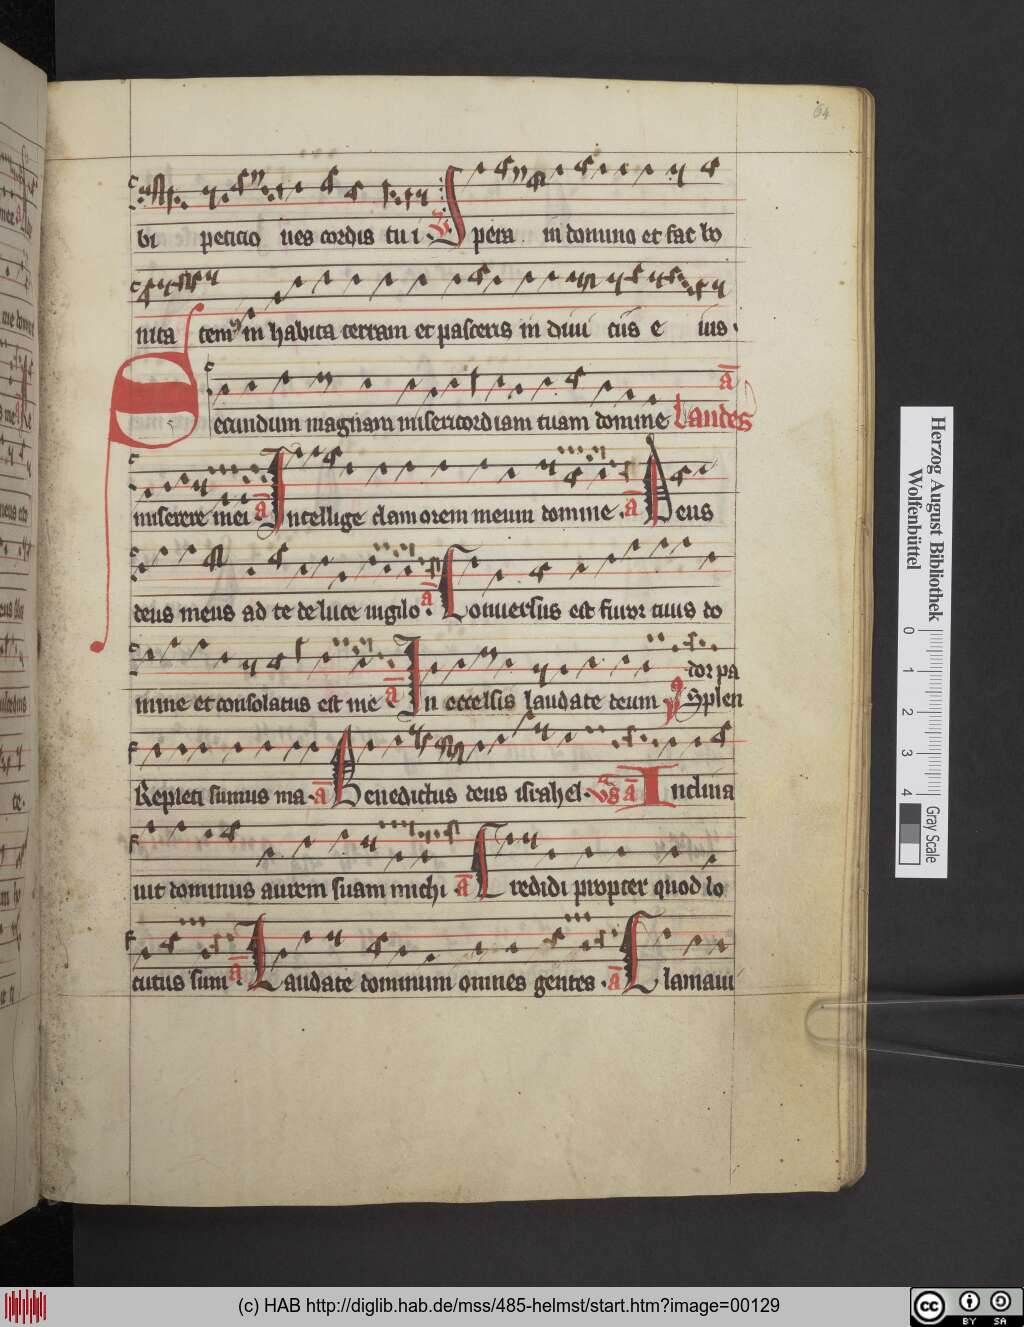 64
bi peticio nes cordis tu i. V Spera in domino et fac bo
nita tem⁹ in habita terram et pasceris in diui ciis e ius.
Secundum magnam misericordiam tuam domine Laudes a
miserere mei a Intellige clamorem meum domine. a Deus
deus meus ad te de luce uigilo. a Conuersus est furor tuus do
mine et consolatus est me a In excelsis laudate deum y Splen
dor pa
Repleti sumus ma. a Benedictus deus israhel. Vs a Inclina
uit dominus aurem suam michi a Credidi propter quod lo
cutus sum a Laudate dominum omnes gentes. a Clamaui
Herzog August Bibliothek
Wolfenbüttel
0 1 2 3 4
Gray Scale
(c) HAB http://diglib.hab.de/mss/485-helmst/start.htm?image=00129
cc BY SA